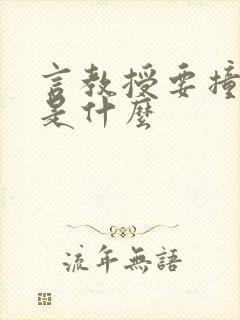 言教授要撞
是什麼
流年無語